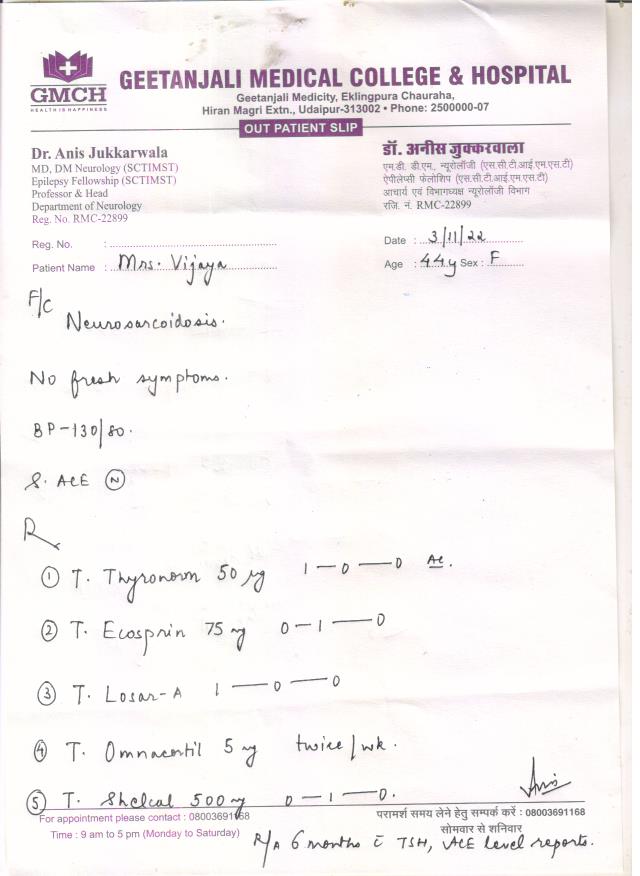 GMCH
HEALTH IS HAPPINESS
GEETANJALI MEDICAL COLLEGE & HOSPITAL
Geetanjali Medicity, Eklingpura Chauraha,
Hiran Magri Extn., Udaipur-313002 • Phone: 2500000-07
OUT PATIENT SLIP
Dr. Anis Jukkarwala
MD, DM Neurology (SCTIMST)
Epilepsy Fellowship (SCTIMST)
Professor & Head
Department of Neurology
Reg. No. RMC-22899
डॉ. अनीस जुक्करवाला
एम.डी. डी.एम., न्यूरोलॉजी (एस.सी.टी.आई.एम.एस.टी)
ऐपीलेप्सी फेलोशिप (एस.सी.टी.आई.एम.एस.टी)
आचार्य एवं विभागध्यक्ष न्यूरोलॉजी विभाग
रजि. नं. RMC-22899
Reg. No. :
Date : 3/11/22
Patient Name : Mrs. Vijaya
Age : 44y Sex : F
F/C
Neurosarcoidosis.
No fresh symptoms.
BP-130/80.
S. ACE Ⓝ
Rx
① T. Thyronorm 50 µg 1—0—0 AC.
② T. Ecosprin 75 mg 0—1—0
③ T. Losar-A 1—0—0
④ T. Omnacortil 5 mg twice/wk.
⑤ T. Shelcal 500 mg 0—1—0.
Anis
For appointment please contact : 08003691168
Time : 9 am to 5 pm (Monday to Saturday)
परामर्श समय लेने हेतु सम्पर्क करें : 08003691168
सोमवार से शनिवार
R/A 6 months c̄ TSH, ACE level reports.